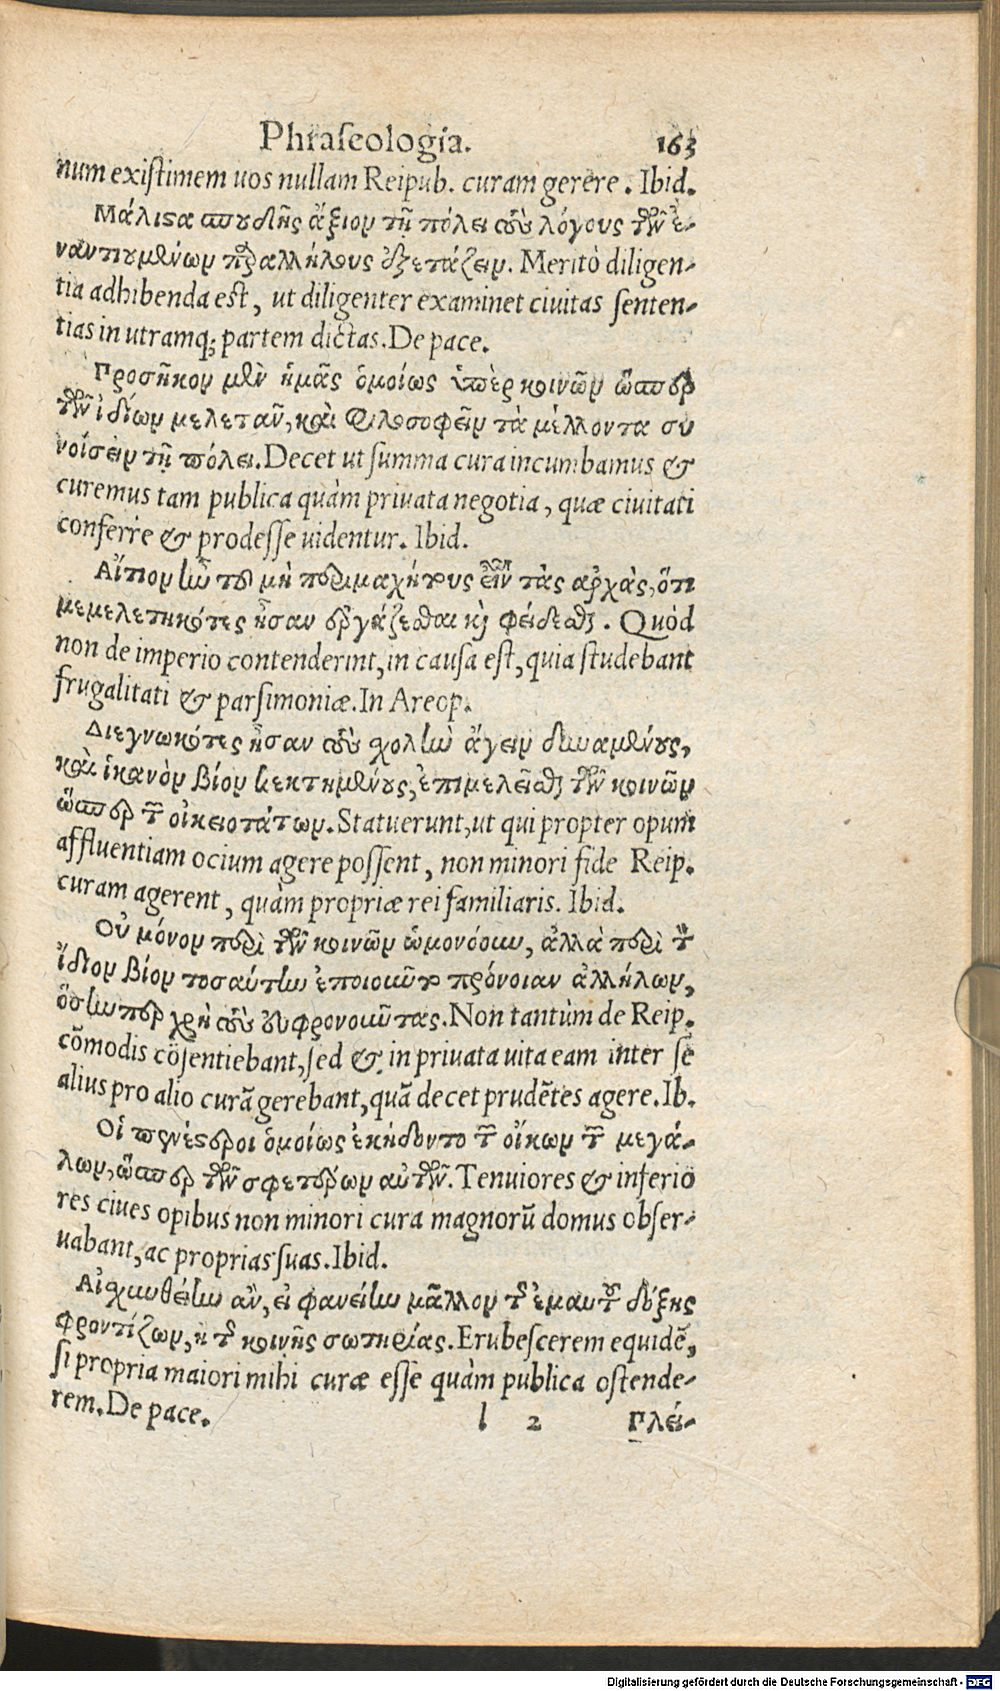 Phraseologia. 163
num existimem uos nullam Reipub. curam gerere. Ibid.
Μάλιστα σπουδῆς ἄξιον τῇ πόλει τοὺς λόγους τῶν ἐ-
ναντιουμένων παραλλήλους ἐξετάζειν. Meritò diligen-
tia adhibenda est, ut diligenter examinet ciuitas senten-
tias in utramq; partem dictas. De pace.
Προσῆκον μὲν ἡμᾶς ὁμοίως ὑπὲρ κοινῶν ὥσπερ
τῶν ἰδίων μελετᾶν, καὶ φιλοσοφεῖν τὰ μέλλοντα συ
νοίσειν τῇ πόλει. Decet ut summa cura incumbamus &
curemus tam publica quàm priuata negotia, quæ ciuitati
conferre & prodesse uidentur. Ibid.
Αἴτιον ἦν τοῦ μὴ περιμαχήτους εἶναι τὰς ἀρχὰς, ὅτι
μεμελετηκότες ἦσαν ἐργάζεσθαι καὶ φείδεσθαι. Quòd
non de imperio contenderint, in causa est, quia studebant
frugalitati & parsimoniæ. In Areop.
Διεγνωκότες ἦσαν τοὺς σχολὴν ἄγειν δυναμένους,
καὶ ἱκανὸν βίον κεκτημένους, ἐπιμελεῖσθαι τῶν κοινῶν
ὥσπερ τῶν οἰκειοτάτων. Statuerunt, ut qui propter opum
affluentiam ocium agere possent, non minori fide Reip.
curam agerent, quàm propriæ rei familiaris. Ibid.
Οὐ μόνον περὶ τῶν κοινῶν ὡμονόουν, ἀλλὰ περὶ τὸν
ἴδιον βίον τοσαύτην ἐποιοῦντο πρόνοιαν ἀλλήλων,
ὅσην περ χρὴ τοὺς εὐφρονοῦντας. Non tantùm de Reip.
cõmodis cõsentiebant, sed & in priuata uita eam inter se
alius pro alio curã gerebant, quã decet prudẽtes agere. Ib.
Οἱ πενέστεροι ὁμοίως ἐκήδοντο τῶν οἴκων τῶν μεγά-
λων, ὥσπερ τῶν σφετέρων αὐτῶν. Tenuiores & inferio
res ciues opibus non minori cura magnorũ domus obser-
uabant, ac proprias suas. Ibid.
Αἰσχυνθείην ἂν, εἰ φανείην μᾶλλον τῆς ἐμαυτοῦ δόξης
φροντίζων, ἢ τῆς κοινῆς σωτηρίας. Erubescerem equidẽ,
si propria maiori mihi curæ esse quàm publica ostende-
rem. De pace.
l 2 Πλεί-
Digitalisierung gefördert durch die Deutsche Forschungsgemeinschaft - DFG